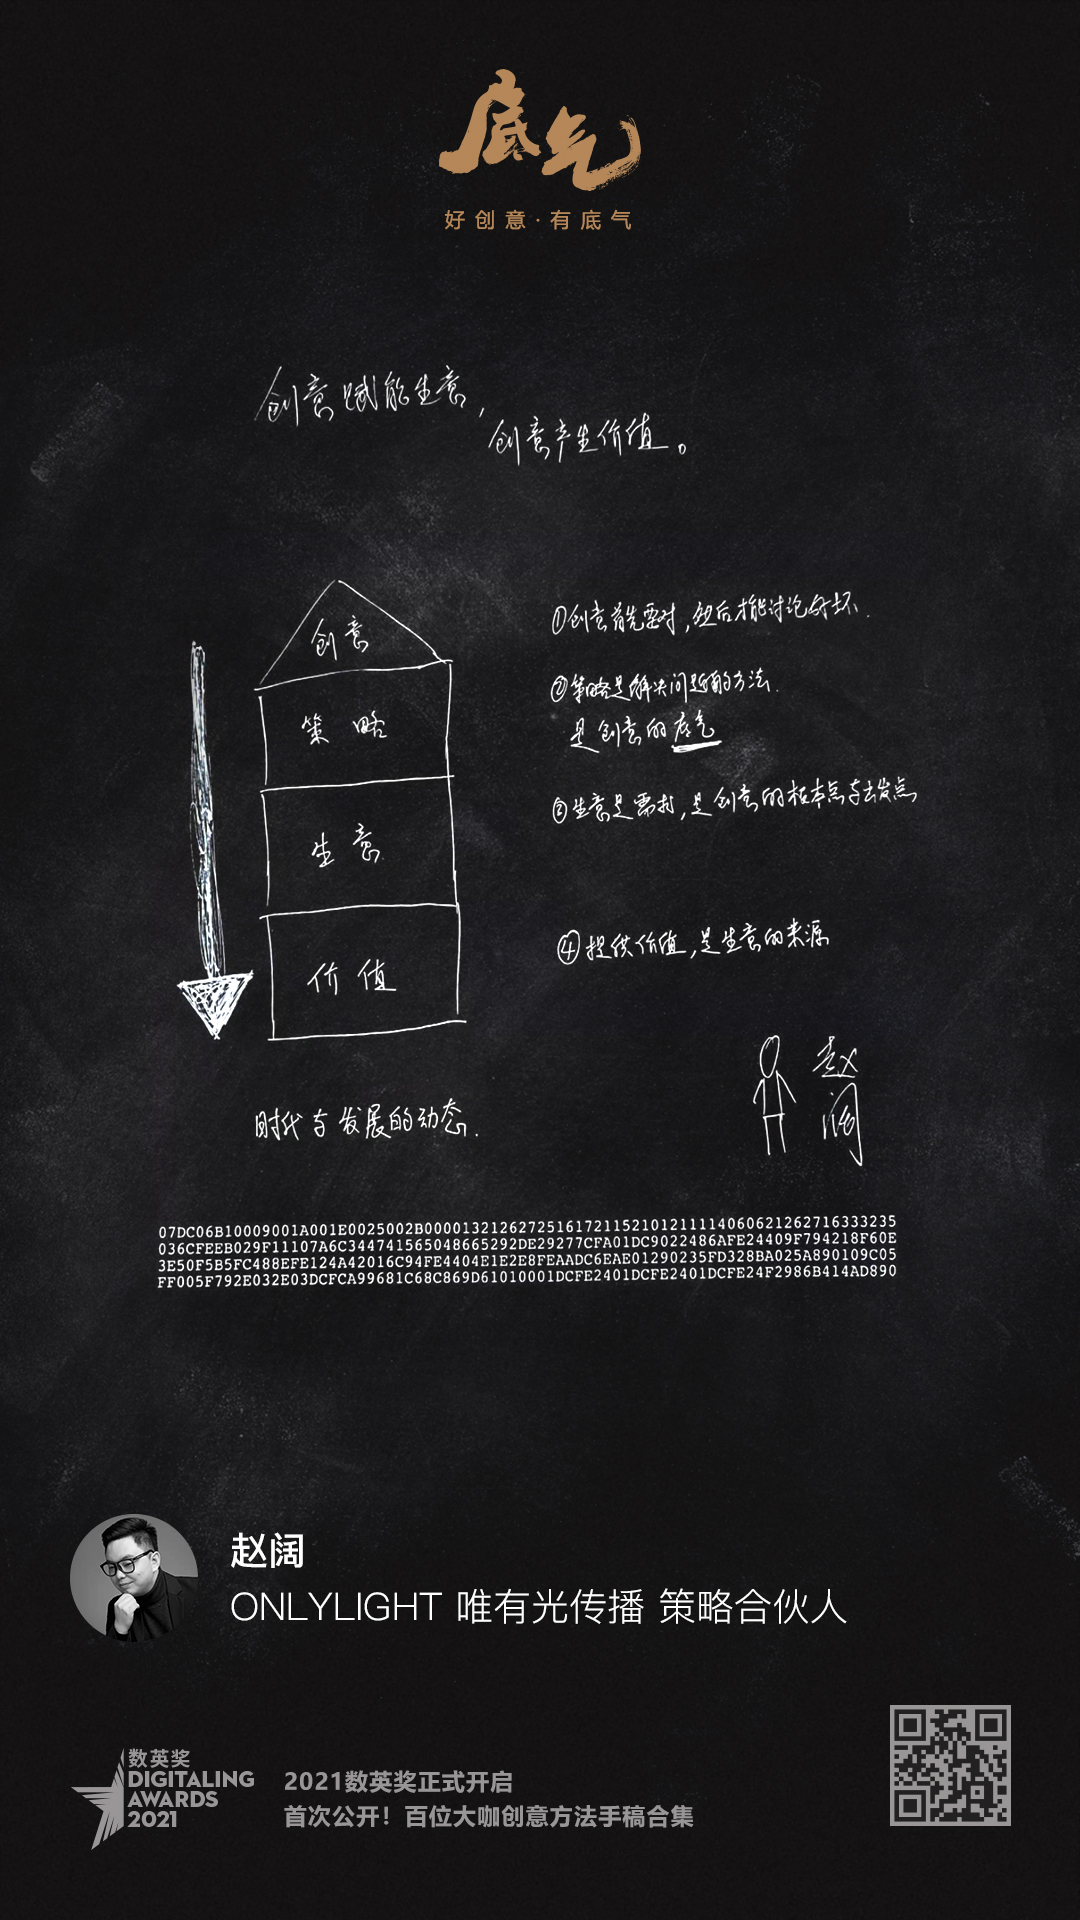 底气
好创意·有底气
创意赋能生意，
创意产生价值。
创意
策略
生意
价值
①创意首先要对，然后才能讨论好坏.
②策略是解决问题的方法.
是创意的底气
③生意是需求，是创意的根本点与出发点
④提供价值，是生意的来源
时代与发展的动态.
赵
阔
07DC06B10009001A001E0025002B00001321262725161721152101211114060621262716333235
036CFEEB029F11107A6C344741565048665292DE29277CFA01DC9022486AFE24409F794218F60E
3E50F5B5FC488EFE124A42016C94FE4404E1E2E8FEAADC6EAE01290235FD328BA025A890109C05
FF005F792E032E03DCFCA99681C68C869D61010001DCFE2401DCFE2401DCFE24F2986B414AD890
赵阔
ONLYLIGHT 唯有光传播 策略合伙人
数英奖
DIGITALING
AWARDS
2021
2021数英奖正式开启
首次公开！百位大咖创意方法手稿合集